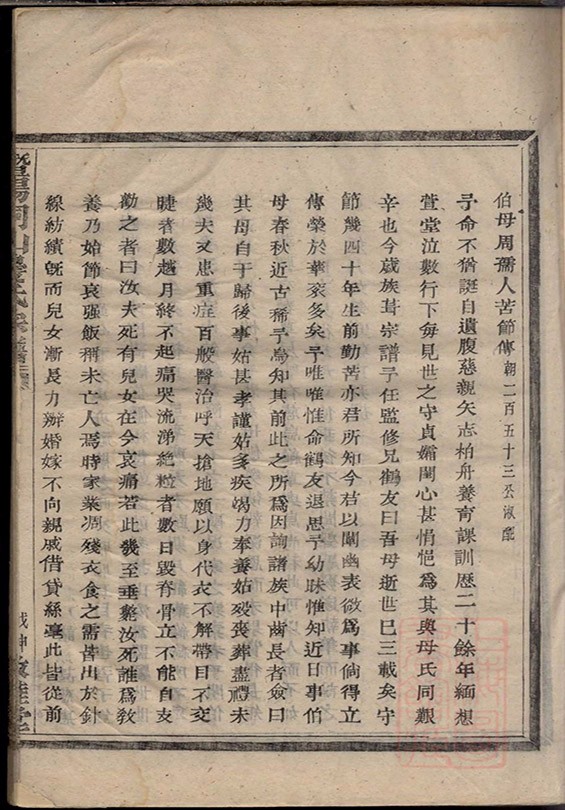 伯母周孺人苦節傳朝二百五十三公淑配
予命不猶誕自遺腹慈親矢志柏舟養育課訓歷二十餘年緬想
萱堂泣數行下每見世之守貞孀閨心甚悄悒為其與母氏同艱
辛也今歲族葺宗譜予任監修兄鶴友曰吾母逝世已三載矣守
節幾四十年生前勤苦亦君所知今君以闡幽表微為事倘得立
傳榮於華袞多矣予唯唯惟命鶴友退思予幼昧惟知近日事伯
母春秋近古稀予烏知其前此之所為因詢諸族中齒長者僉曰
其母自于歸後事姑甚孝謹姑多疾竭力奉養姑歿喪葬盡禮未
幾夫又患重症百般醫治呼天搶地願以身代衣不解帶目不交
睫者數越月終不起痛哭流涕絶粒者數日毀脊骨立不能自支
勸之者曰汝夫死有兒女在今哀痛若此幾至垂斃汝死誰為教
養乃始節哀强飯稱未亡人焉時家業凋殘衣食之需皆出於針
線紡績旣而兒女漸長力辦婚嫁不向親戚借貸絲毫此皆從前
戊申